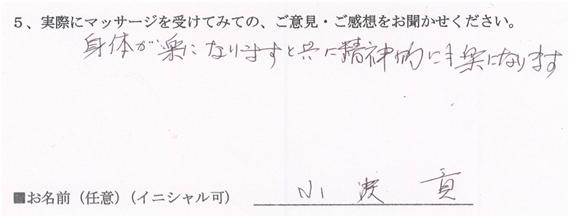 5、実際にマッサージを受けてみての、ご意見・ご感想をお聞かせください。
身体が楽になりますと共に精神的にも楽になります
■お名前（任意）（イニシャル可） 小 渡 貢